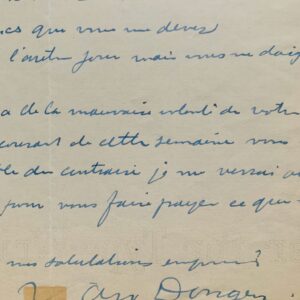 que vous me devez
l'autre jour mais vous ne
a de la mauvaise volonté de votre
courant de cette semaine vous
contraire je me verrai
pour vous faire payer ce que
mes salutations